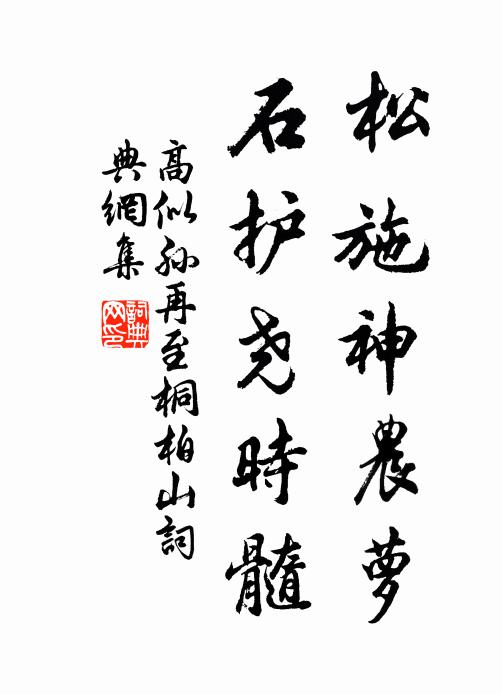 松施神農萝
石护尧時髓
高似孙再至桐柏山詞
典網集
詞典网印